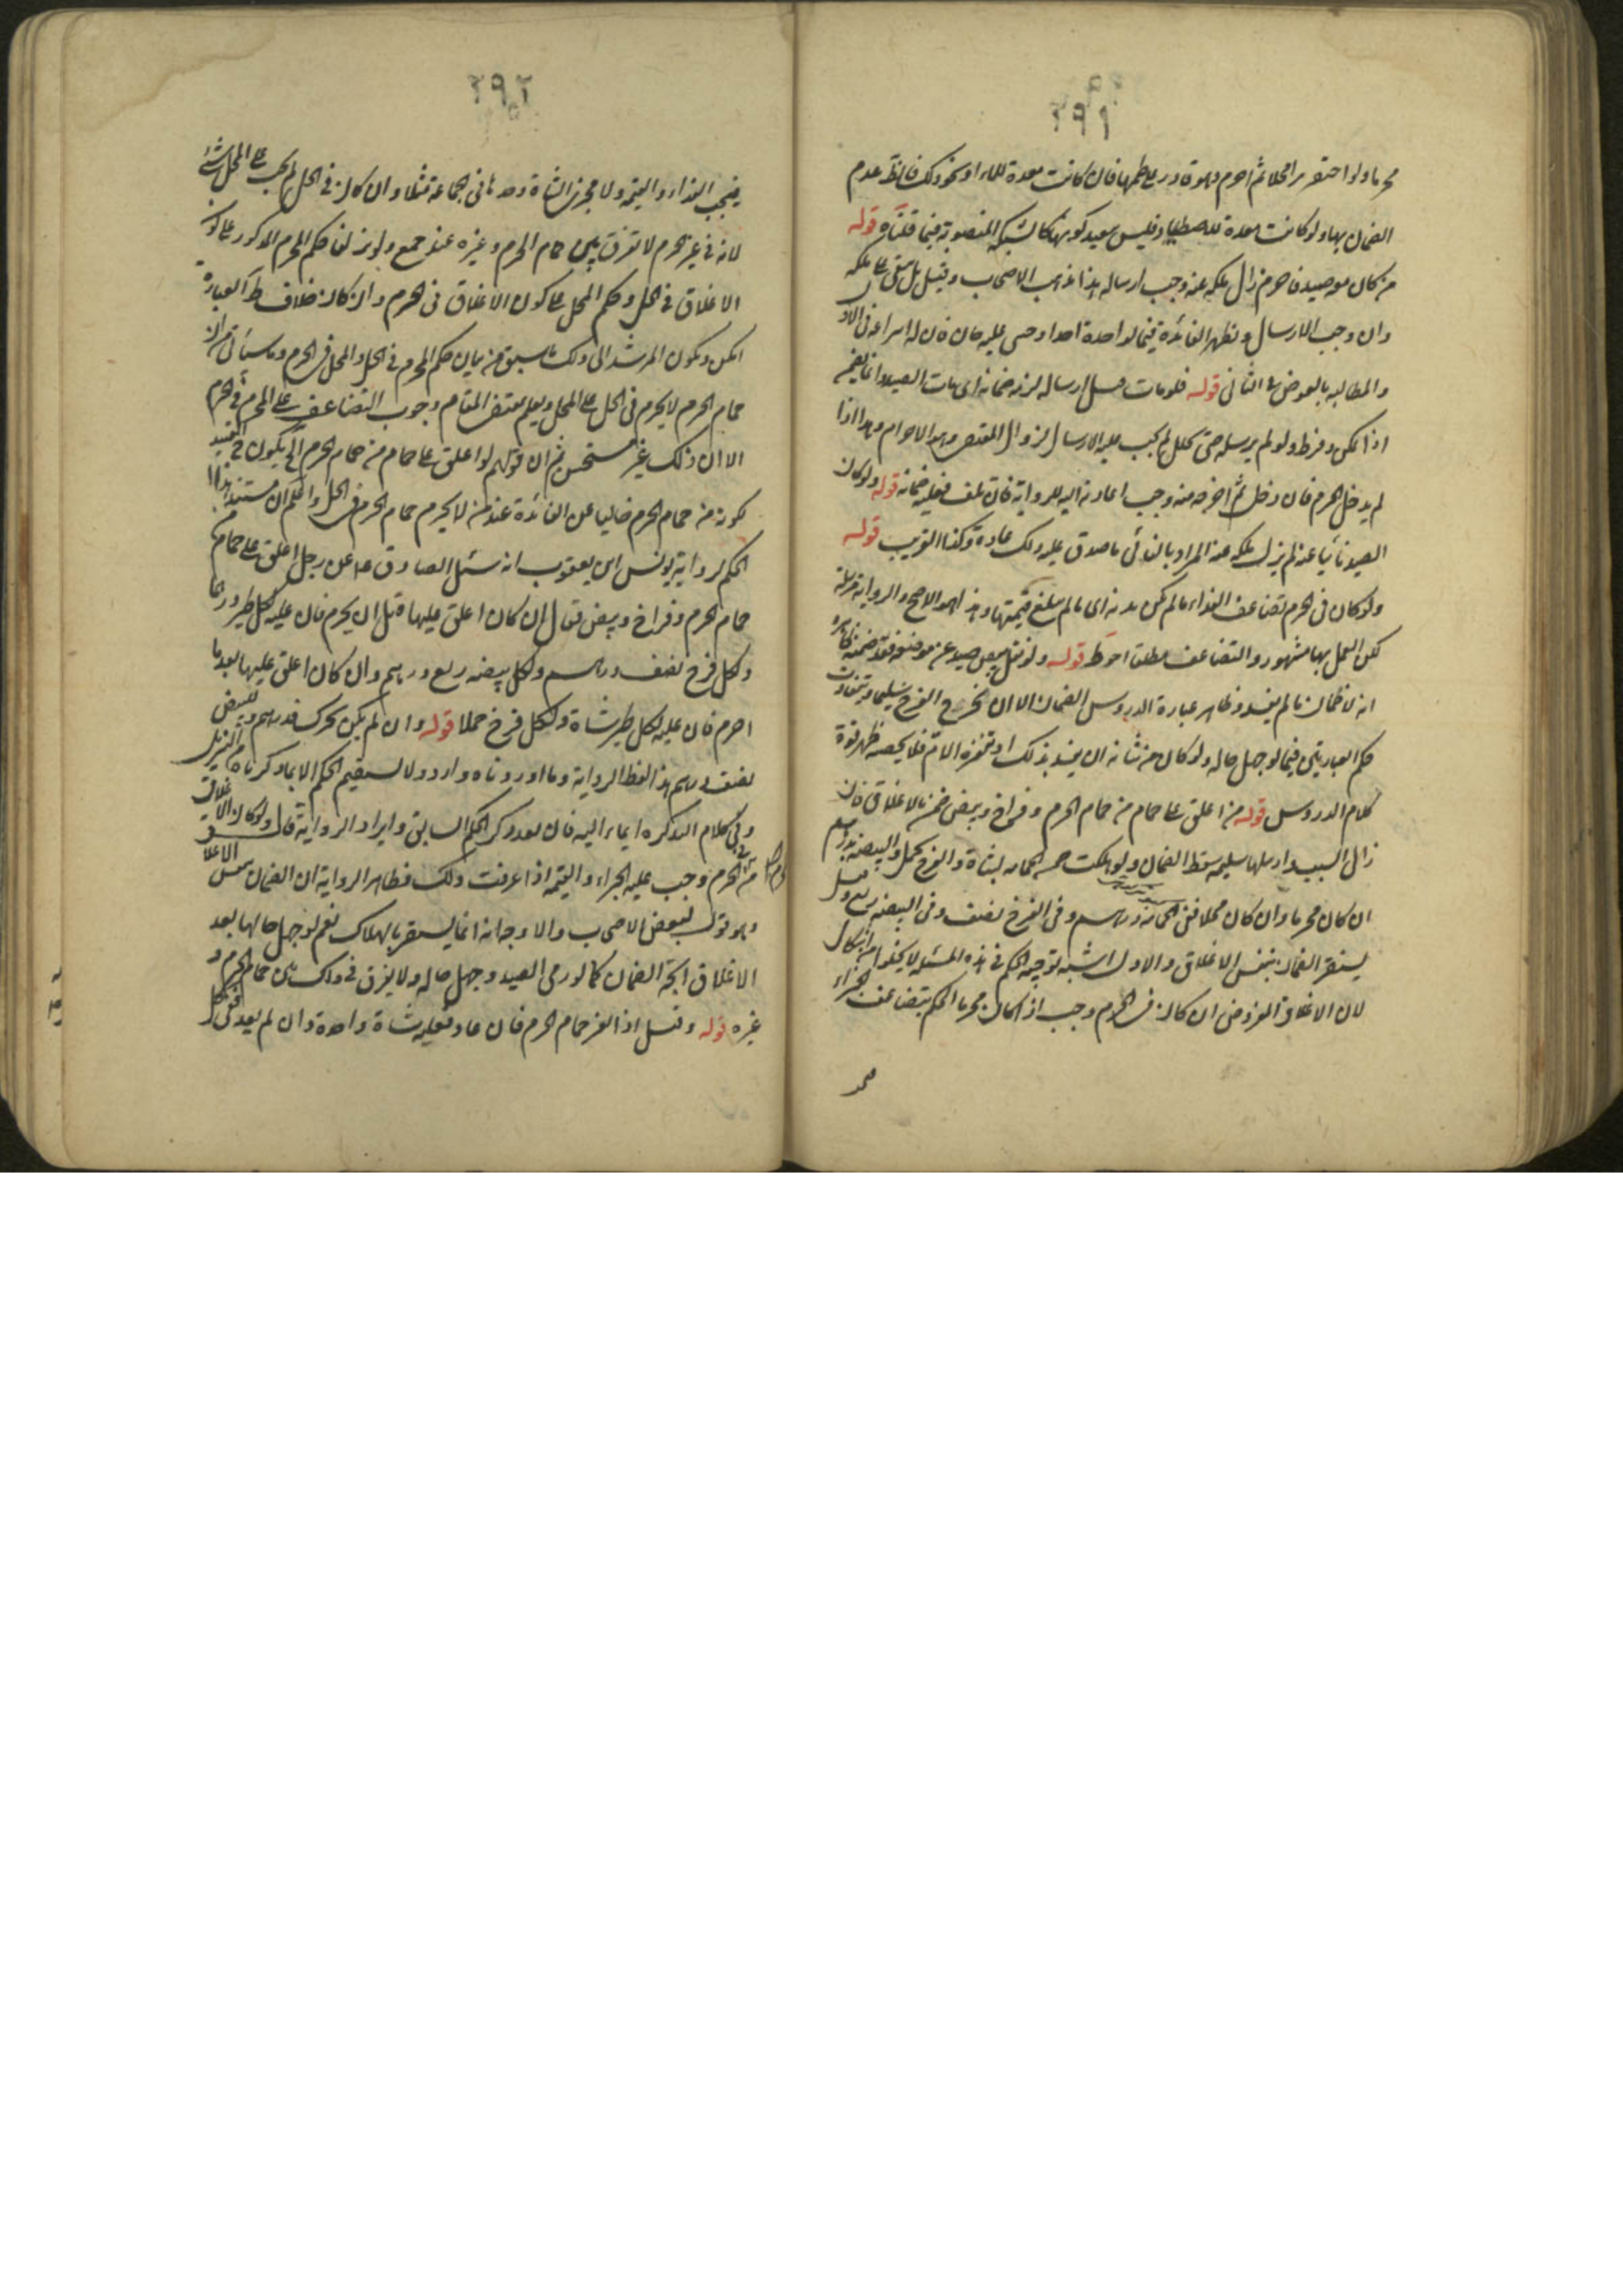 ٢٩١
محرما ولو احتفر بئرا محلا ثم احرم وهو قادر على طمها فان كانت معدة للماء او نحو ذلك فالظ عدم
الضمان بها ولو كانت معدة للاصطياد فليس ببعيد كونها كالشبكة المنصوبة فيما قلناه قوله
من كان معه صيد فاحرم زال ملكه عنه ووجب ارساله هذا مذهب الاصحاب وقيل بل يبقى على ملكه
وان وجب الارسال وتظهر الفائدة فيما لو اخذه احد او جنى عليه جان فان له انتزاعه فى
والمطالبة بالعوض على الثانى قوله فلو مات قبل ارساله لزمه ضمانه اى مات الصيد وانما يضمنه
اذا امكن وفرط ولو لم يرسله حتى تحلل لم يجب عليه الارسال لزوال المقتضى وهو الاحرام وهذا اذا
لم يدخل الحرم فان دخل ثم اخرجه منه وجب اعادته اليه للرواية فان تلف فعليه ضمانه قوله ولو كان
الصيد نائيا عنه لم يزل ملكه عنه المراد بالنائى ما صدق عليه ذلك عادة وكذا القريب قوله
ولو كان فى الحرم تضاعف الفداء ما لم يكن بدنه اى ما لم تبلغ قيمتها وهذا هو الاصح والرواية مرسلة
لكن العمل بها مشهور والتضاعف مطلقا احوط قوله ولو نقل بيض صيد عن موضعه ففسد ضمنه ظاهره
انه لا ضمان ما لم يفسد وظاهر عبارة الدروس الضمان الا ان يخرج الفرخ سليما ويتفاوت
حكم العبارتين فيما لو جهل حاله ولو كان من شانه ان يفسد بذلك او تنفره الام فلا يحضنه ظهر قوة
كلام الدروس قوله من اغلق على حمام من حمام الحرم وفراخ وبيض ضمن بالاغلاق فان
زال السبب وارسلها سليمة سقط الضمان ولو هلكت ضمن الحمامة بشاة والفرخ بحمل والبيضة بدرهم
ان كان محرما وان كان محلا ففى الحمامة درهم وفى الفرخ نصف وفى البيضة ربع وقيل
يستقر الضمان بنفس الاغلاق والاول اشبه توجيه الحكم فى هذه المسئلة لا يخلوا من اشكال
لان الاغلاق المفروض ان كان فى الحرم وجب اذا كان محرما الحكم بتضاعف الجزاء
٢٩٢
فيجب الفداء والقيمة ولا يجزى الشاة وحدها فى الحمامة مثلا وان كان فى الحل لم يجب على المحل شئ
لانه فى غير الحرم لا تفرق بين حمام الحرم وغيره عند جمع ولو نزلنا حكم المحرم المذكور على كون
الاغلاق فى الحل وحكم المحل على كون الاغلاق فى الحرم وان كان خلاف ظ العبارة
امكن ويكون المرشد الى ذلك ما سبق من بيان حكم المحرم فى الحل والمحل فى الحرم وما سيأتى من ان
حمام الحرم لا يحرم فى الحل على المحل ويعلم بمقتضى المقام وجوب التضاعف على المحرم فى الحرم
الا ان ذلك غير مستحسن ثم ان قولهم لو اغلق على حمام من حمام الحرم الخ يكون التقييد
بكونه من حمام الحرم خاليا عن الفائدة عند من لا يحرم حمام الحرم فى الحل واعلم ان مستند هذا
الحكم رواية يونس ابن يعقوب انه سئل الصادق ع عن رجل اغلق على حمام من
حمام الحرم وفراخ وبيض فقال ان كان اغلق عليها قبل ان يحرم فان عليه لكل طير درهما
ولكل فرخ نصف درهم ولكل بيضة ربع درهم وان كان اغلق عليها بعد ما
احرم فان عليه لكل طير شاة ولكل فرخ حملا قوله وان لم يكن تحرك فدرهم وللبيض
نصف درهم هذا لفظ الرواية وما اوردناه وارد ولا يستقيم الحكم الا بما ذكرناه من التنزيل
وفى كلام التذكرة ايماء اليه فان بعد ذكر الحكم السابق وايراد الرواية قال ولو كان الاغلاق
من المحرم فى الحرم وجب عليه الجزاء والقيمة اذا عرفت ذلك فظاهر الرواية ان الضمان بنفس الاغلاق
وهو قول لبعض الاصحاب والاوجه انه انما يستقر بالهلاك نعم لو جهل حالها بعد
الاغلاق اتجه الضمان كما لو رمى الصيد وجهل حاله ولا يفرق فى ذلك بين حمام الحرم و
غيره قوله وقيل اذا نفر حمام الحرم فان عاد فعليه شاة واحدة وان لم يعد فعن كل